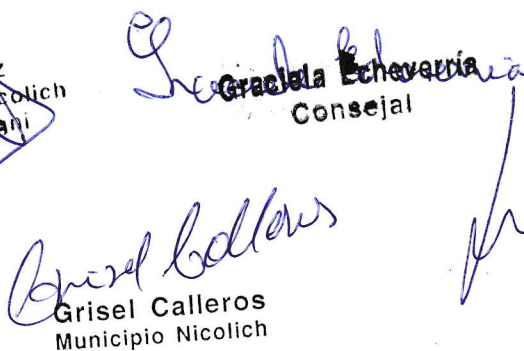 colich
ani
Graciela Echeverria
Consejal
Grisel Calleros
Grisel Calleros
Municipio Nicolich